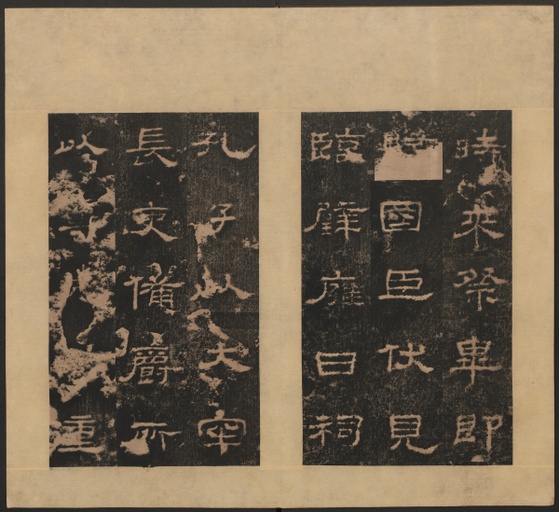 時來祭畢即
國臣伏見
臨璧雍日祠
孔子以大宰
長吏備爵所
以重